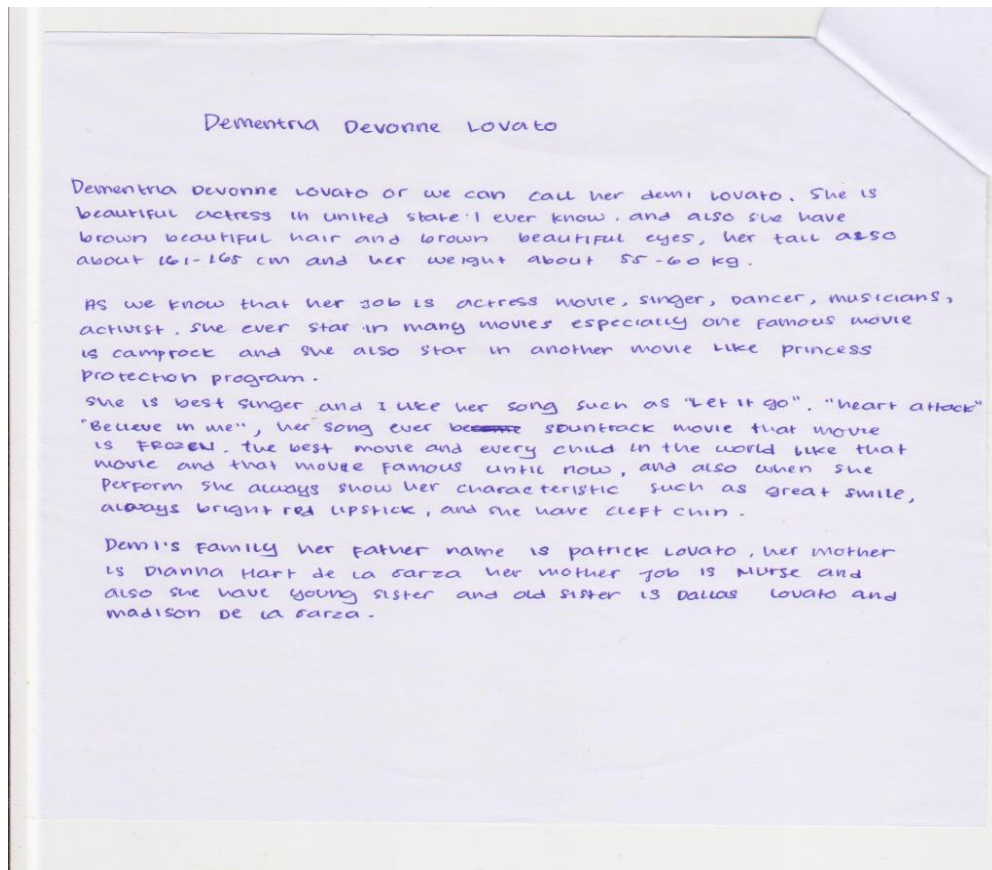 Dementria Devonne Lovato
Dementria Devonne Lovato or we can call her demi Lovato. She is
beautiful actress in united state I ever know, and also she have
brown beautiful hair and brown beautiful eyes, her tall also
about 161-165 cm and her weight about 55-60 kg.
As we know that her job is actress movie, singer, Dancer, musicians,
activist. she ever star in many movies especially one famous movie
is camprock and she also star in another movie like princess
protection program.
she is best singer and I like her song such as "Let it go". "heart attack"
"Believe in me", her song ever became sountrack movie that movie
is FROZEN. the best movie and every child in the world like that
movie and that movie famous until now, and also when she
perform she always show her characteristic such as great smile,
always bright red lipstick, and she have cleft chin.
Demi's Family her Father name is patrick Lovato, her mother
is Dianna Hart de La Garza her mother job is Nurse and
also she have young sister and old sister is Dallas Lovato and
madison De La Garza.